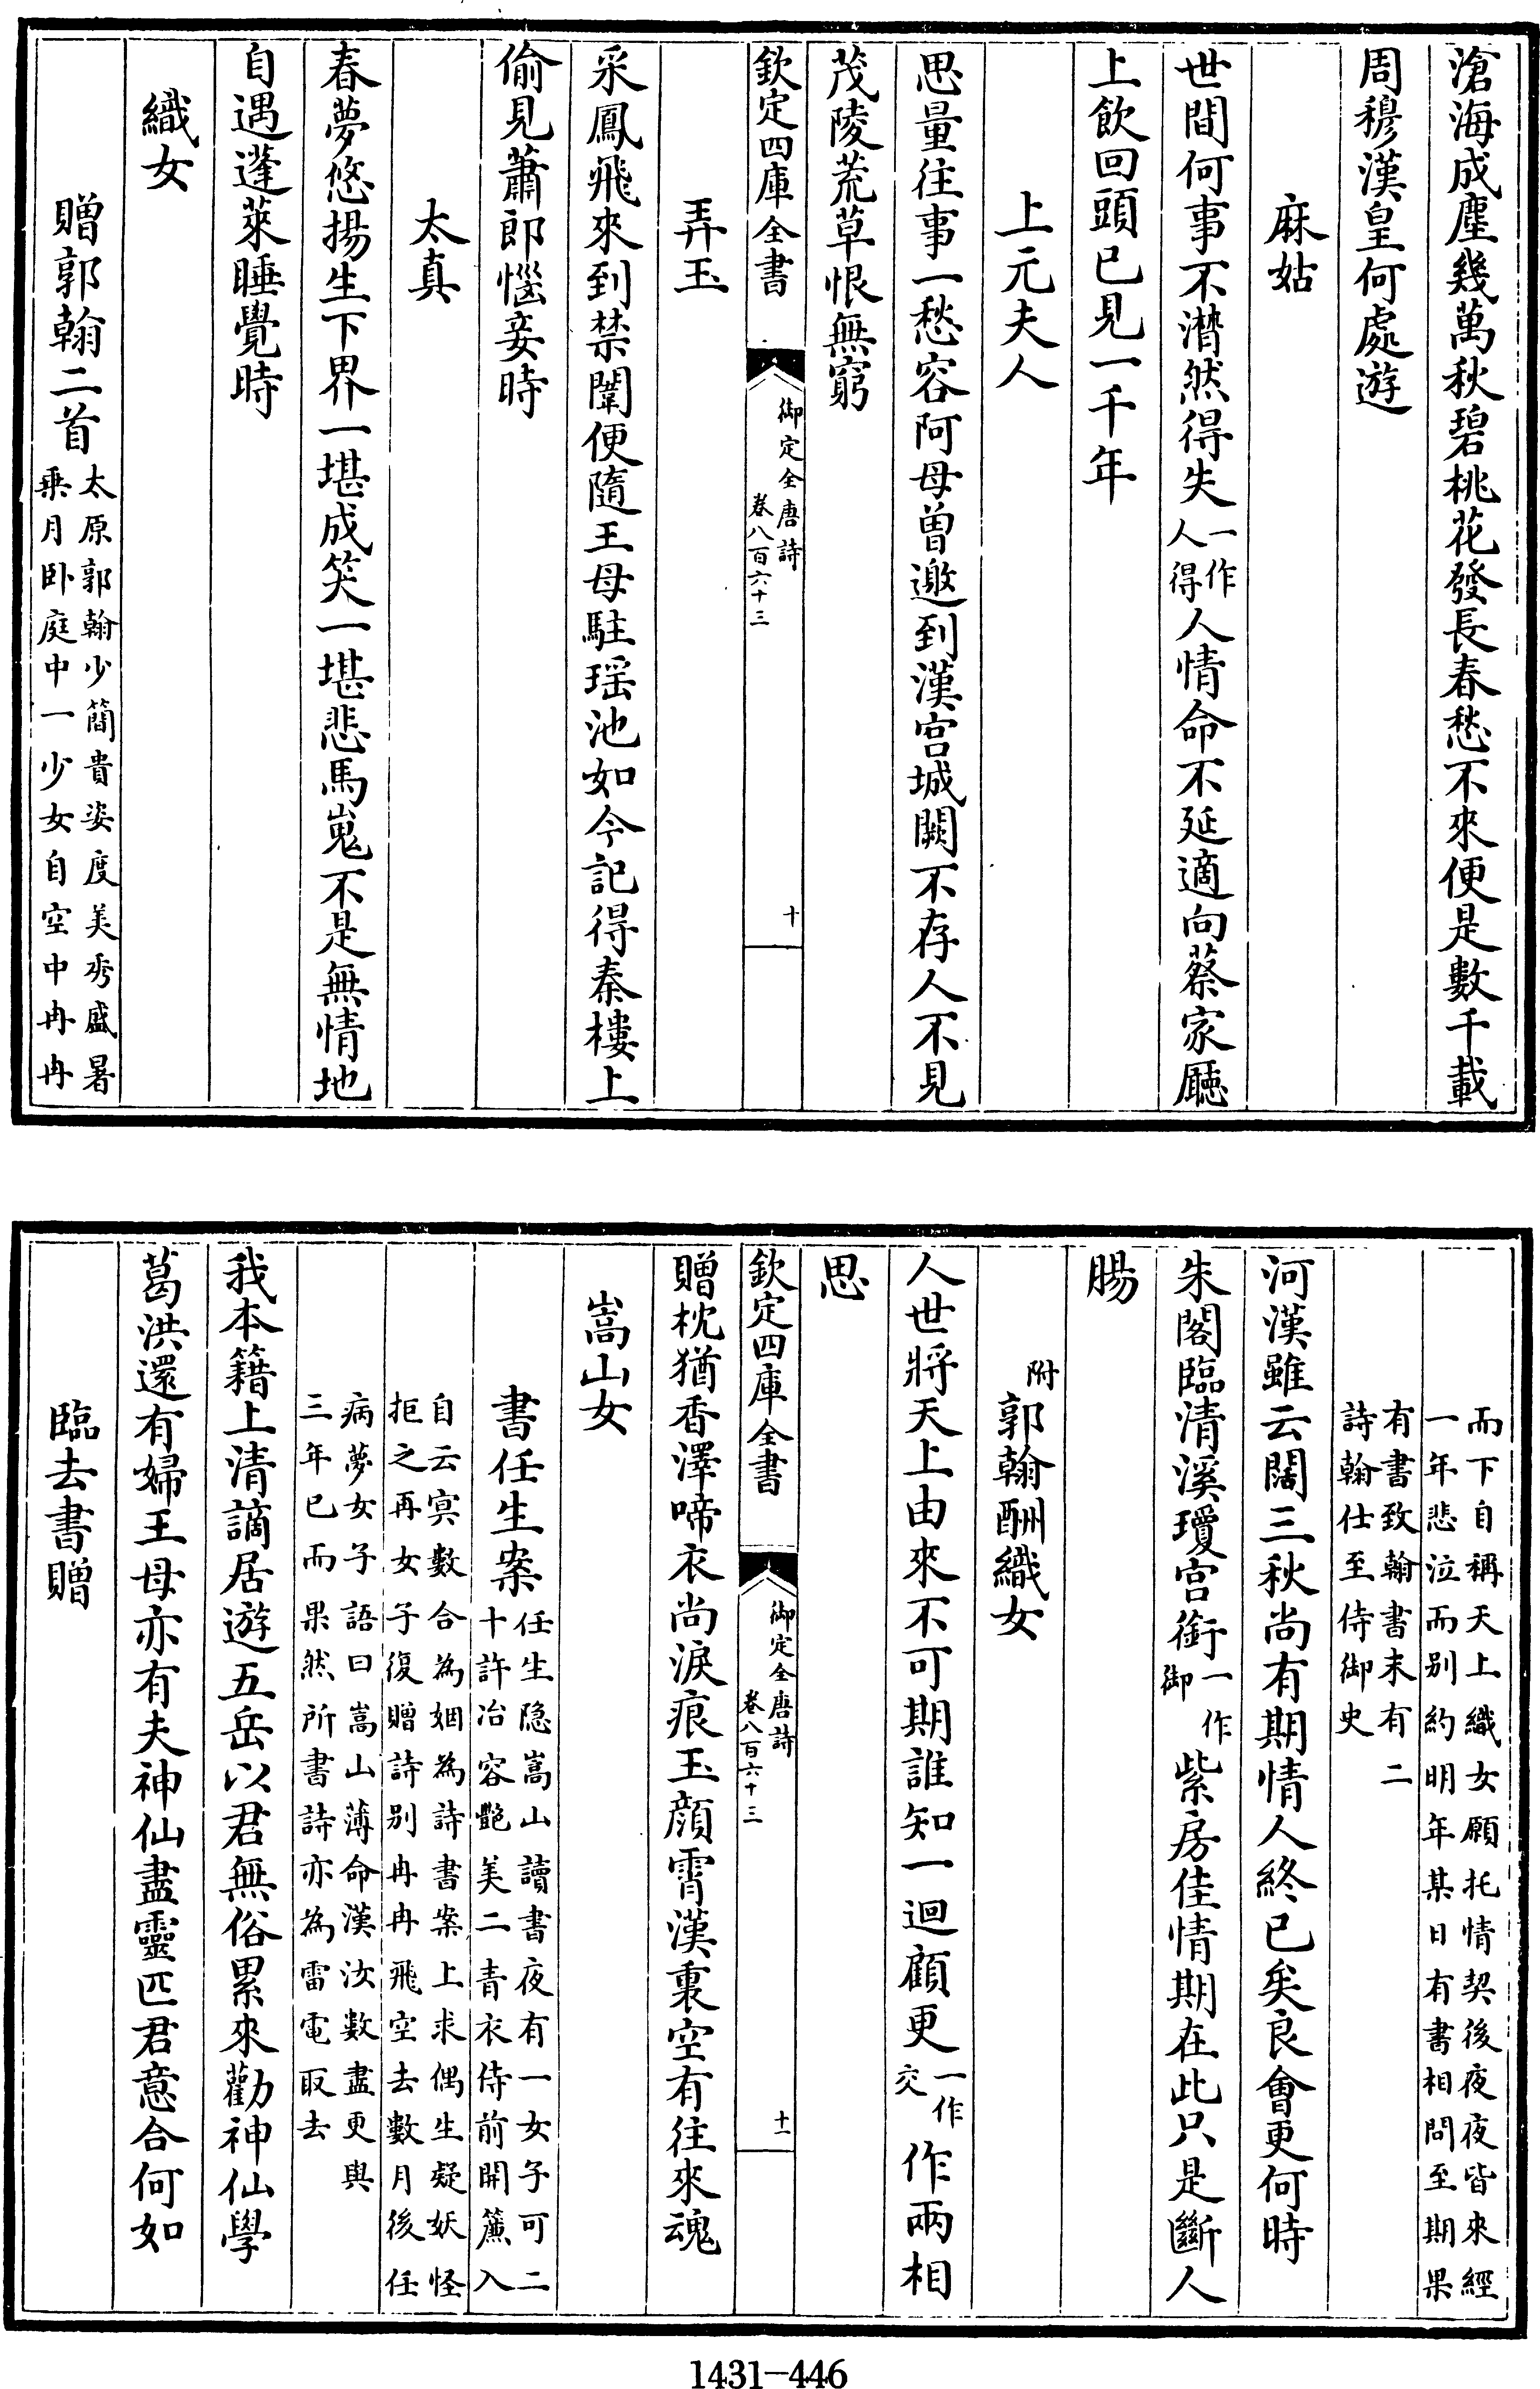 滄海成塵幾萬秋碧桃花發長春愁不來便是數千載
周穆漢皇何處遊
麻姑
世間何事不潸然得失一作人得人情命不延適向蔡家廳
上飲回頭已見一千年
上元夫人
思量往事一愁容阿母曾邀到漢宫城闕不存人不見
茂陵荒草恨無窮
欽定四庫全書
御定全唐詩
卷八百六十三
十
弄玉
采鳳飛來到禁闈便隨王母駐瑶池如今記得秦樓上
偷見蕭郎惱妾時
太真
春夢悠揚生下界一堪成笑一堪悲馬嵬不是無情地
自遇蓬萊睡覺時
織女
贈郭翰二首
太原郭翰少簡貴姿度美秀盛暑
乗月卧庭中一少女自空中冉冉
而下自稱天上織女願托情契後夜夜皆來經
一年悲泣而别約明年某日有書相問至期果
有書致翰書末有二
詩翰仕至侍御史
河漢雖云闊三秋尚有期情人終已矣良會更何時
朱閣臨清溪瓊宫銜一作御紫房佳情期在此只是斷人
腸
附郭翰酬織女
人世將天上由來不可期誰知一迴顧更一作交作兩相
思
欽定四庫全書
御定全唐詩
卷八百六十三
十一
贈枕猶香澤啼衣尚淚痕玉顔霄漢裏空有往來魂
嵩山女
書任生案
任生隐嵩山讀書夜有一女子可二
十許冶容艷美二青衣侍前開簾入
自云冥數合為姻為詩書案上求偶生疑妖怪
拒之再女子復贈詩别冉冉飛空去數月後任
病夢女子語曰嵩山薄命漢汝數盡更與
三年已而果然所書詩亦為雷電取去
我本籍上清謫居遊五岳以君無俗累來勸神仙學
葛洪還有婦王母亦有夫神仙盡靈匹君意合何如
臨去書贈
1431-446